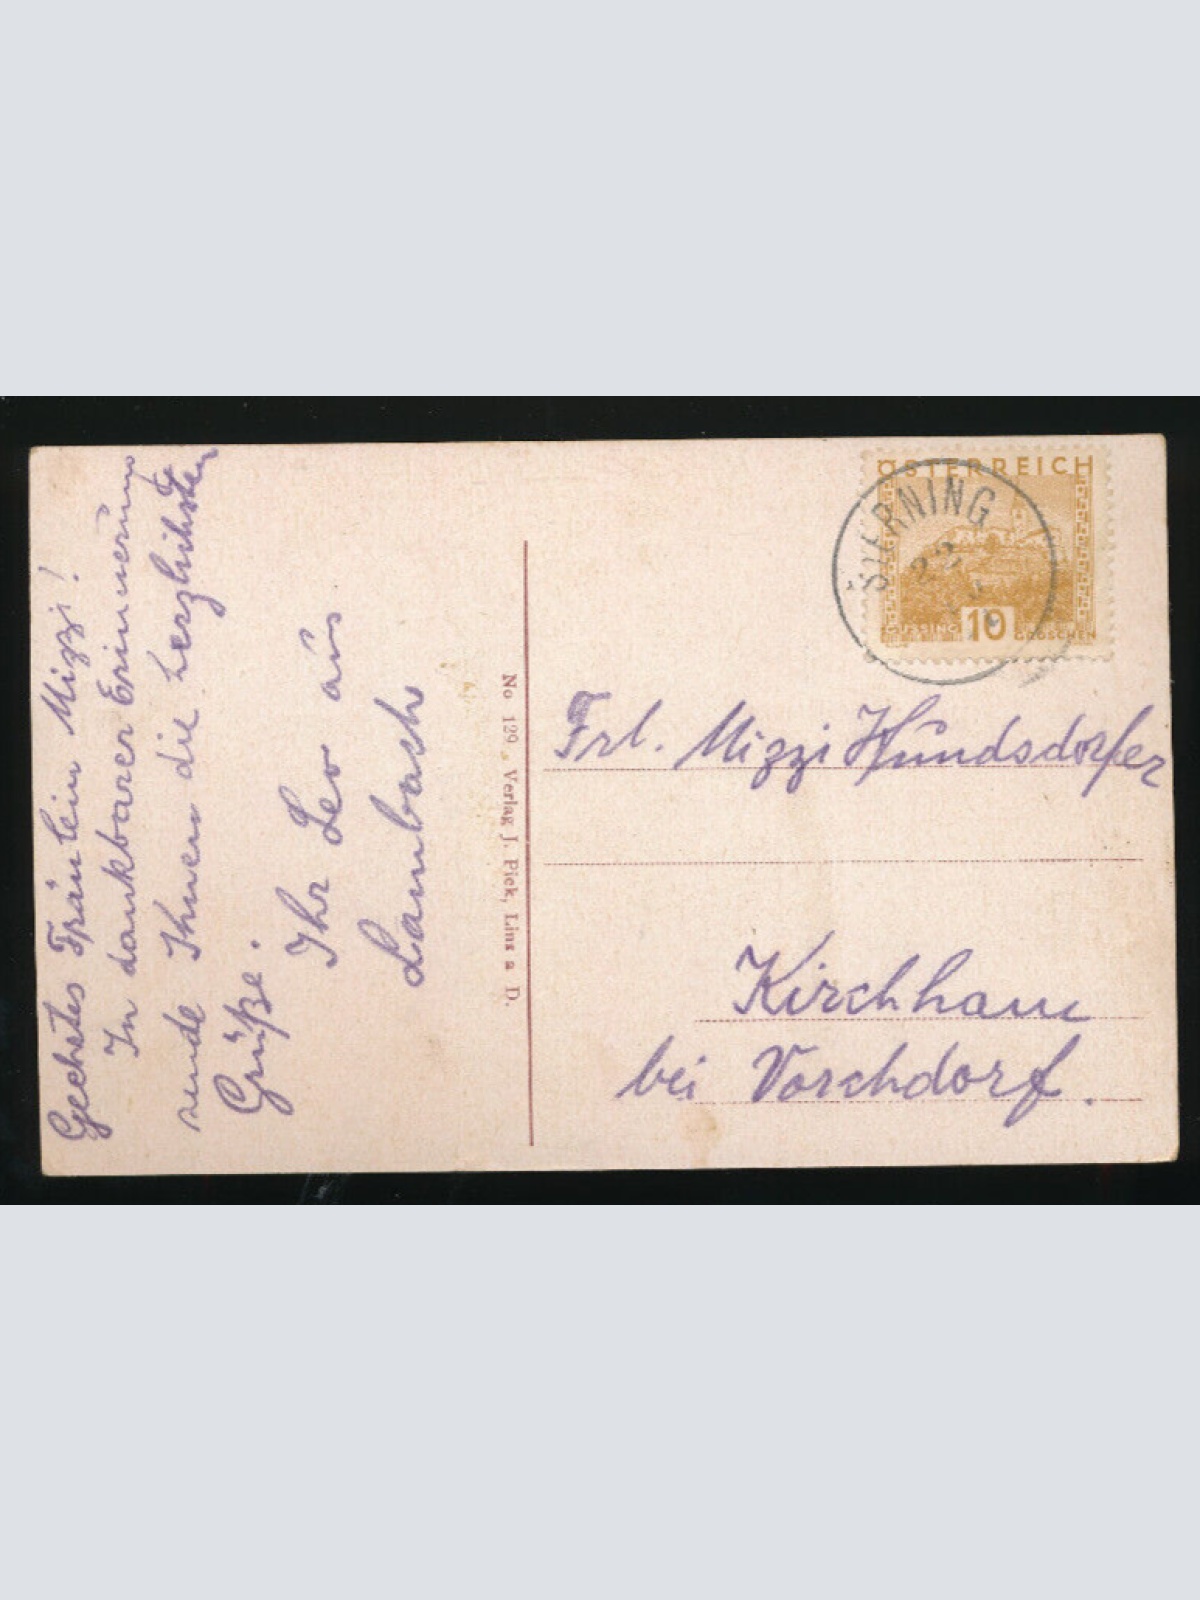 Geehrtes Fräulein Mizzi!
In dankbarer Erinnerung
sende Ihnen die herzlichsten
Grüße.
Ihr Leo aus
Lambach
No 129 Verlag J. Pick, Linz a D.
ÖSTERREICH
GÜSSING 10 GROSCHEN
STERNING
22
Frl. Mizzi Hundsdorfer
Kirchham
bei Vorchdorf.